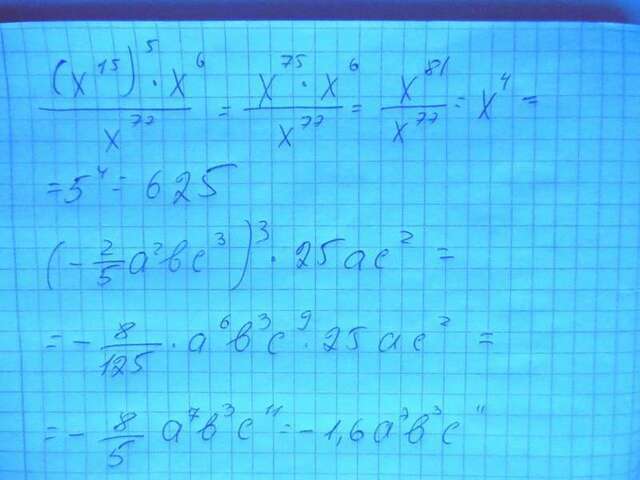 (x^15)^5 · x^6 / x^77 = x^75 · x^6 / x^77 = x^81 / x^77 = x^4 =
= 5^4 = 625
(-2/5 a^2bc^3)^3 · 25ac^2 =
= -8/125 · a^6b^3c^9 · 25ac^2 =
= -8/5 a^7b^3c^11 = -1,6a^7b^3c^11